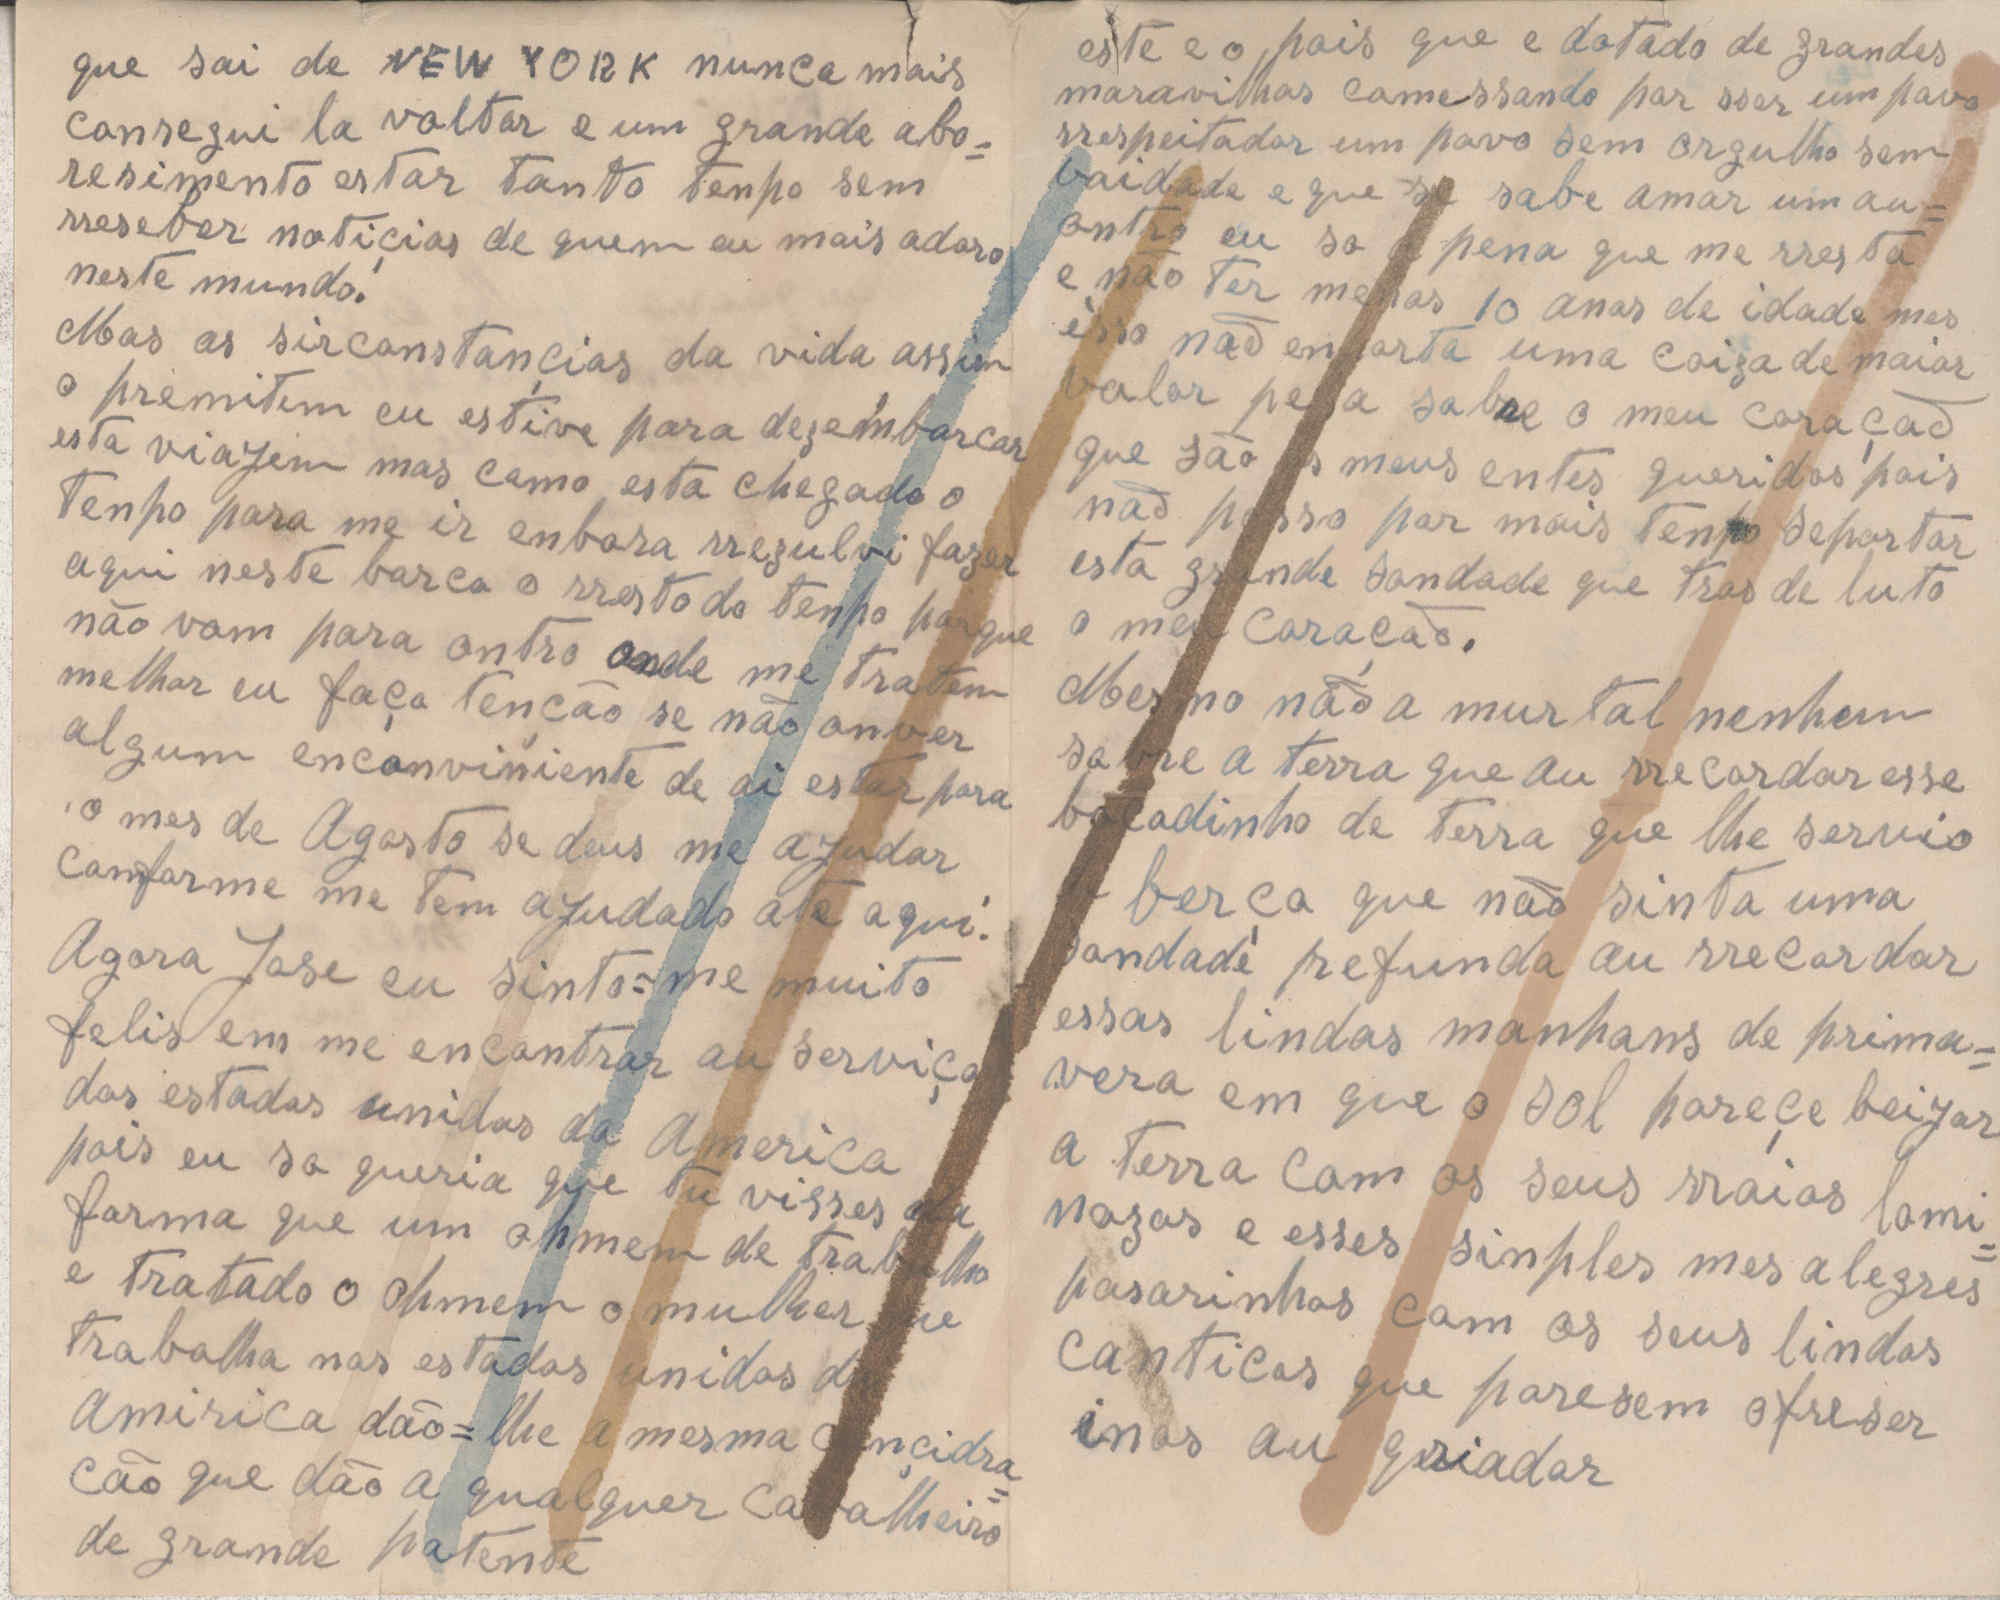 que sai de NEW YORK nunca mais
consegui la voltar e um grande abo=
resimento estar tanto tenpo sem
rreseber noticias de quem eu mais adoro
neste mundo.
Mas as sirconstançias da vida assim
o premitem eu estive para dezembarcar
esta viajem mas como esta chegado o
tenpo para me ir enbora rrezulvi fazer
aqui neste barco o rresto do tenpo porque
não vom para ontro onde me tratem
melhor eu faço tenção se não onver
algum enconviniente de ai estar para
o mes de Agosto se deus me ajudar
comforme me tem ajudado ate aqui.
Agora Jose eu sinto=me muito
felis em me encontrar au serviço
dos estados unidos da America
pois eu so queria que tu visses da
forma que um ohmem de trabalho
e tratado o ohmem o mulher que
trabalha nos estados unidos da
Amirica dão=lhe a mesma conçidra=
ção que dão a qualquer cavalheiro
de grande patente
este e o pais que e dotado de grandes
maravilhas comessando por sser um povo
rrespeitador um povo sem orgulho sem
vaidade e que se sabe amar um au=
ontro eu so a pena que me rresta
e não ter menos 10 anos de idade mes
isso não enporta uma coiza de maior
valor pesa sobre o meu coração
que são os meus entes queridos pois
não posso por mais tenpo seportar
esta grande sandade que tras de luto
o meu coração.
Mesmo não a murtal nenhum
sobre a terra que au rrecordar esse
bocadinho de terra que lhe servio
berço que não sinta uma
sandade prefunda au rrecordar
essas lindas manhans de prima=
vera em que o sol pareçe beijar
a terra com os seus rraios lomi=
nozos e esses sinples mes alegres
pasarinhos com os seus lindos
canticos que paresem ofreser
inos au griador